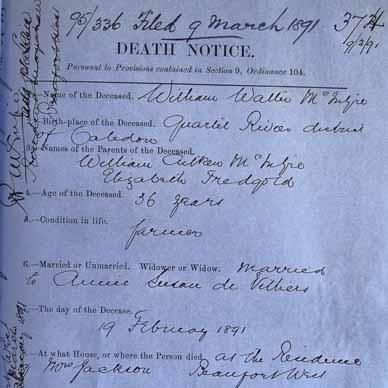 95/336 Filed 9 March 1891
9/3/91
DEATH NOTICE.
Pursuant to Provisions contained in Section 9, Ordinance 104.
Name of the Deceased. William Walter McIntyre
Birth-place of the Deceased. Quartel River district
of Caledon
3.—Names of the Parents of the Deceased.
William Aitken McIntyre
Elizabeth Tredgold
4.—Age of the Deceased. 36 years
5.—Condition in life.
farmer
6.—Married or Unmarried. Widower or Widow. Married
to Annie Susan de Villiers
—The day of the Decease.
19 February 1891
—At what House, or where the Person died at the Residence
Mrs Jackson Beaufort West